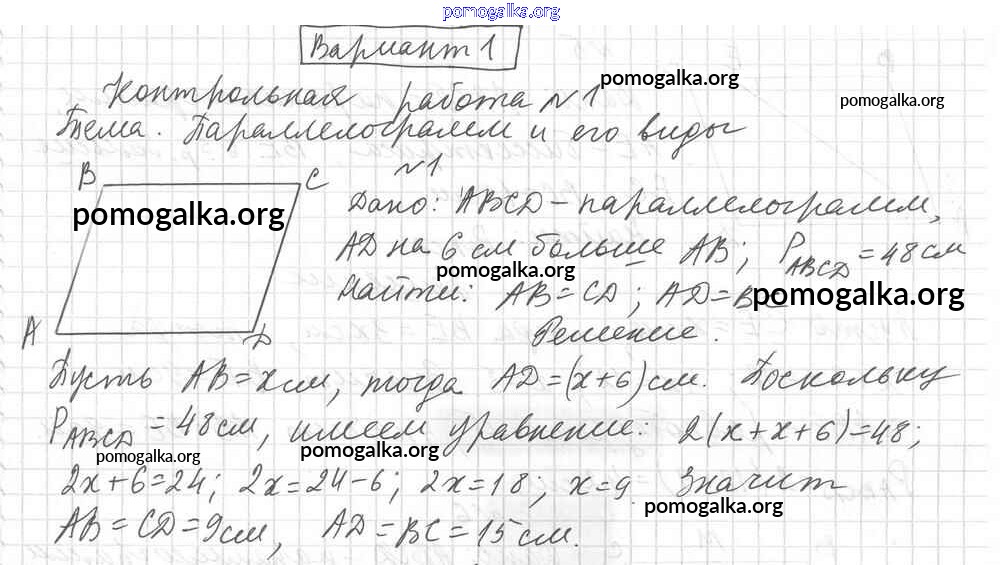 pomogalka.org
Вариант 1
Контрольная работа №1
pomogalka.org
pomogalka.org
Тема. Параллелограмм и его виды
№1
B C
pomogalka.org
Дано: ABCD - параллелограмм,
AD на 6 см больше AB; P_ABCD = 48 см
pomogalka.org
Найти: AB = CD; AD = BC
pomogalka.org
A D
Решение.
Пусть AB = x см, тогда AD = (x+6) см. Поскольку
P_ABCD = 48 см, имеем уравнение: 2(x+x+6)=48;
pomogalka.org
pomogalka.org
2x+6=24; 2x=24-6; 2x=18; x=9. Значит
pomogalka.org
AB = CD = 9 см, AD = BC = 15 см.